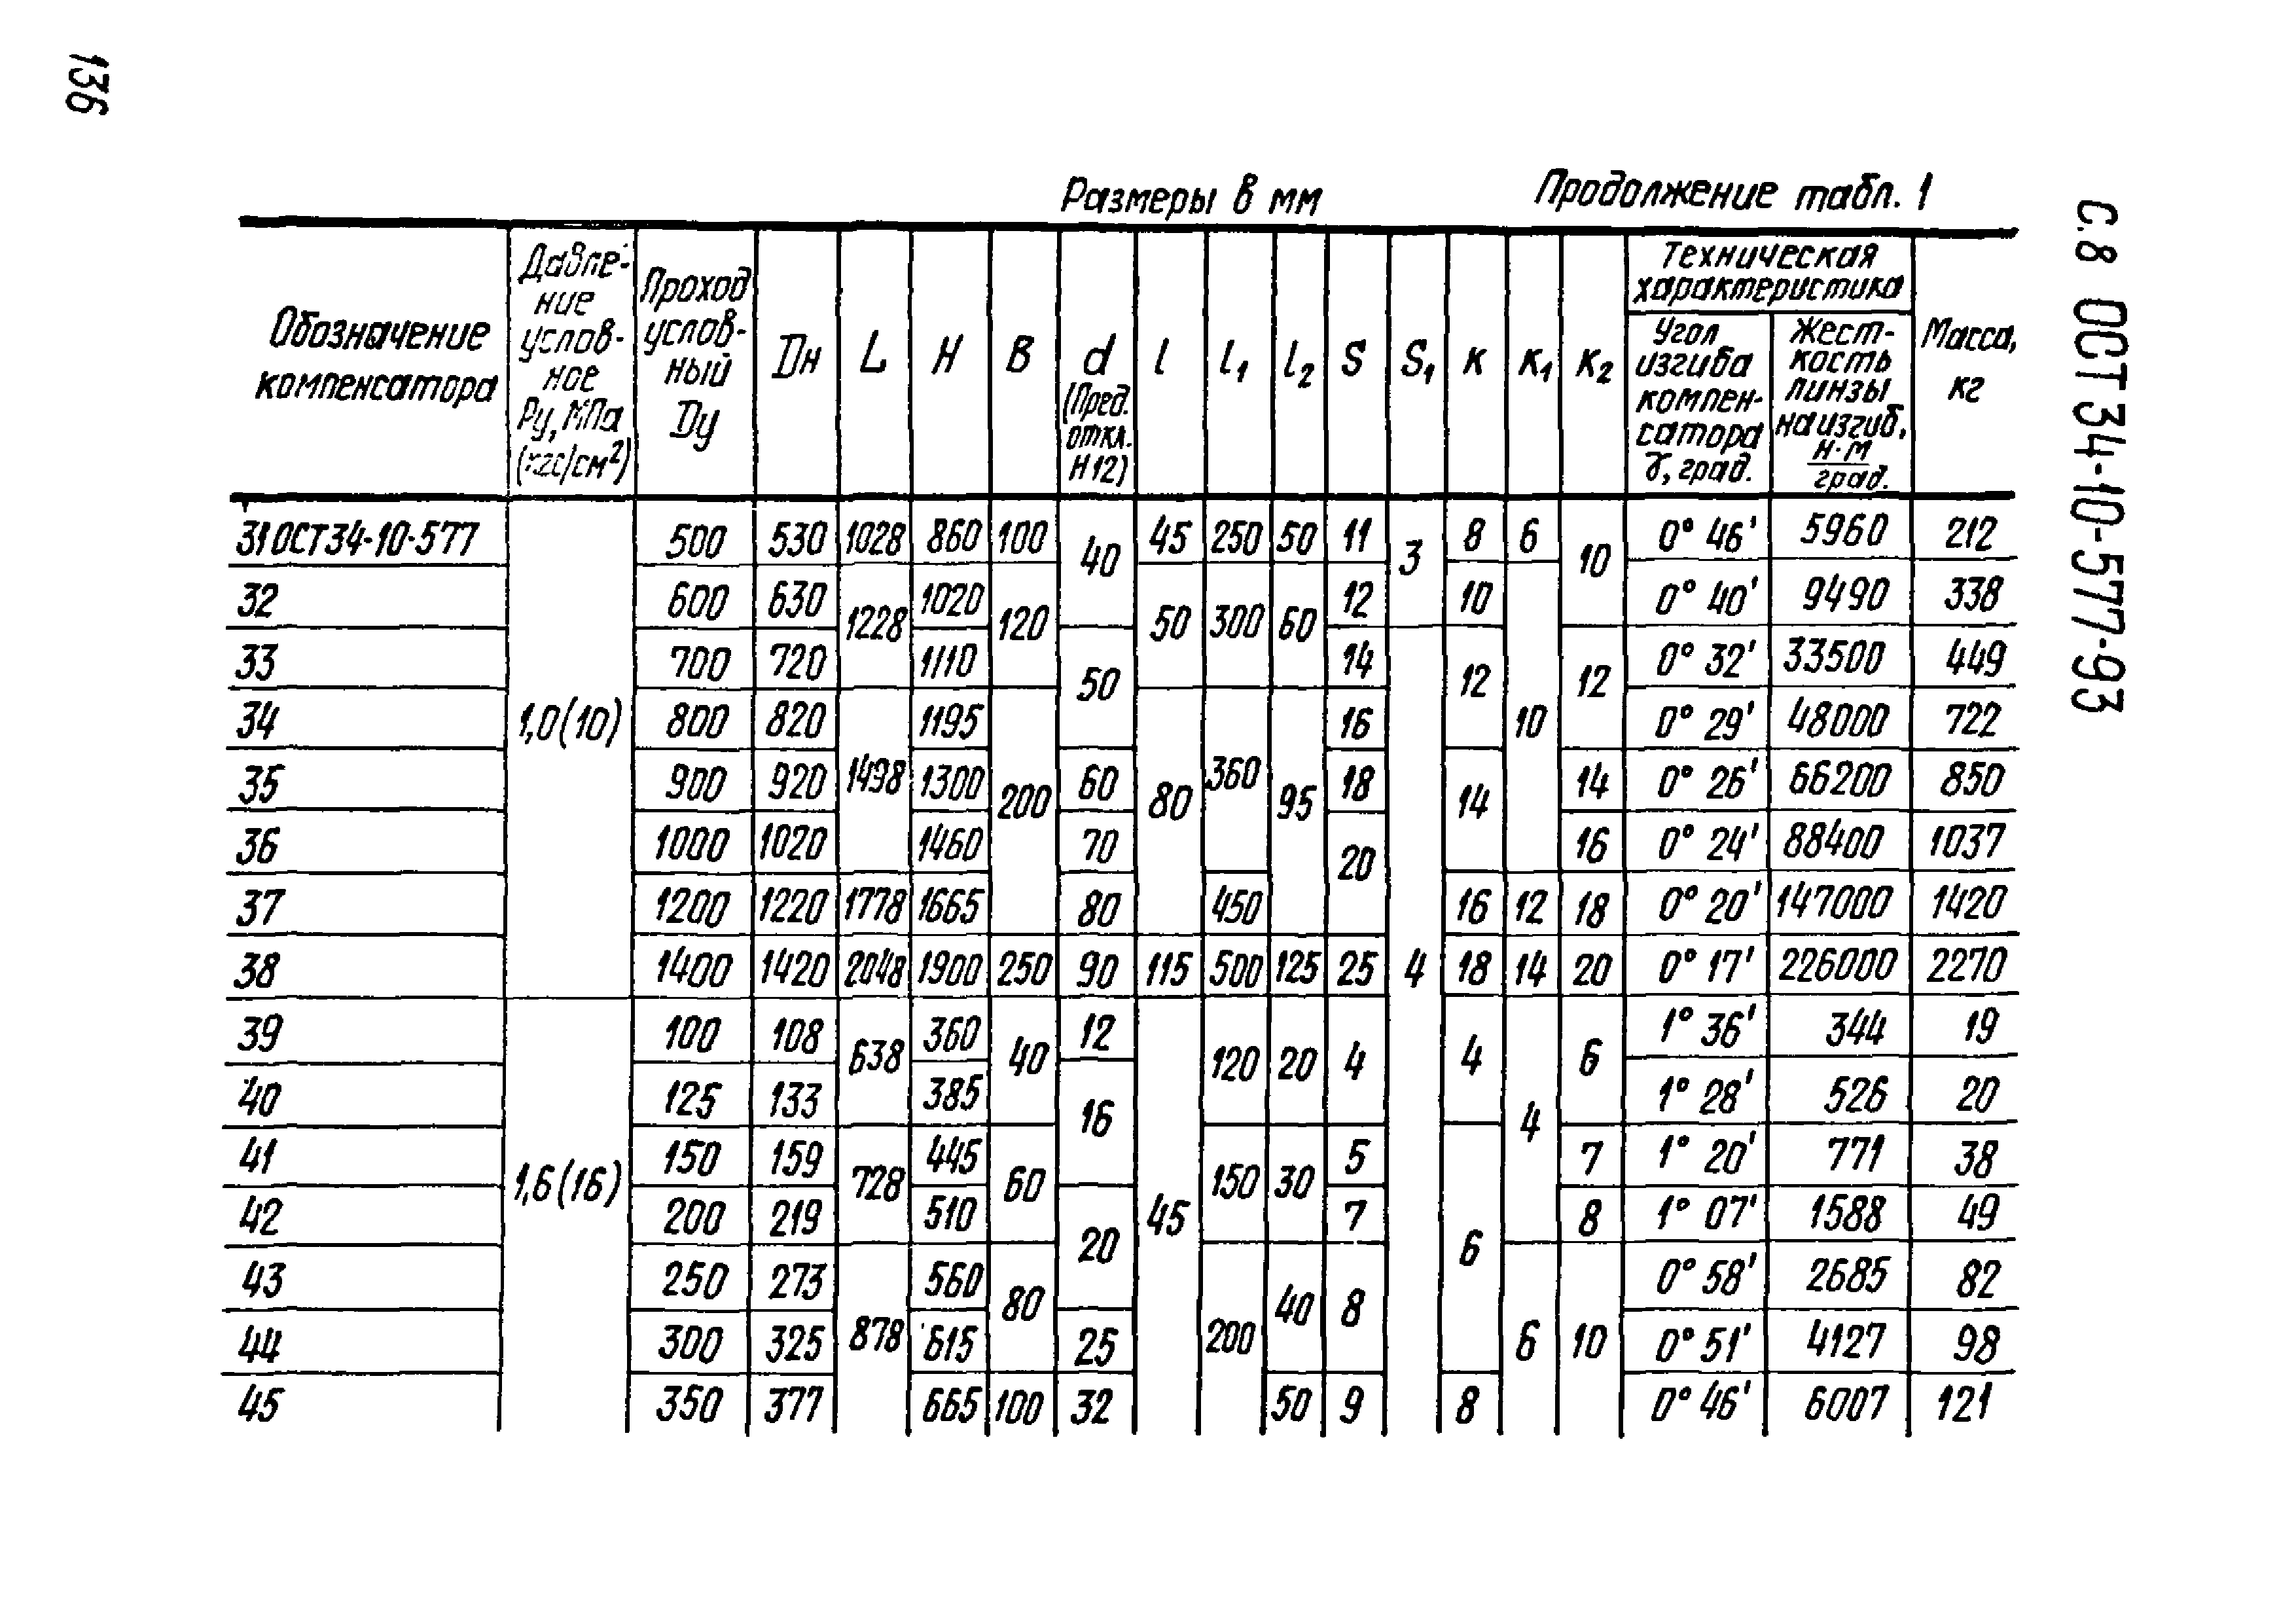 136
Размеры в мм Продолжение табл. 1
С.8 ОСТ 34-10-577-93
Обозначение компенсатора
Давле-
ние
услов-
ное
Ру, МПа
(кгс/см²)
Проход
услов-
ный
Ду
Дн
L
H
B
d
(Пред.
откл.
H12)
l
l₁
l₂
S
S₁
к
к₁
к₂
Техническая
характеристика
Угол
изгиба
компен-
сатора
γ, град.
Жест-
кость
линзы
на изгиб,
Н·м
град.
Масса,
кг
31 ОСТ 34-10-577 500 530 1028 860 100 40 45 250 50 11 3 8 6 10 0° 46' 5960 212
32 600 630 1228 1020 120 50 300 60 12 10 0° 40' 9490 338
33 700 720 1110 50 14 12 12 0° 32' 33500 449
34 1,0(10) 800 820 1195 16 10 0° 29' 48000 722
35 900 920 1498 1300 200 60 80 360 95 18 14 14 0° 26' 66200 850
36 1000 1020 1460 70 20 16 0° 24' 88400 1037
37 1200 1220 1778 1665 80 450 16 12 18 0° 20' 147000 1420
38 1400 1420 2048 1900 250 90 115 500 125 25 4 18 14 20 0° 17' 226000 2270
39 100 108 638 360 40 12 120 20 4 4 6 1° 36' 344 19
40 125 133 385 16 4 1° 28' 526 20
41 1,6(16) 150 159 728 445 60 150 30 5 7 1° 20' 771 38
42 200 219 510 20 45 7 6 8 1° 07' 1588 49
43 250 273 560 80 40 8 0° 58' 2685 82
44 300 325 878 615 25 200 6 10 0° 51' 4127 98
45 350 377 665 100 32 50 9 8 0° 46' 6007 121